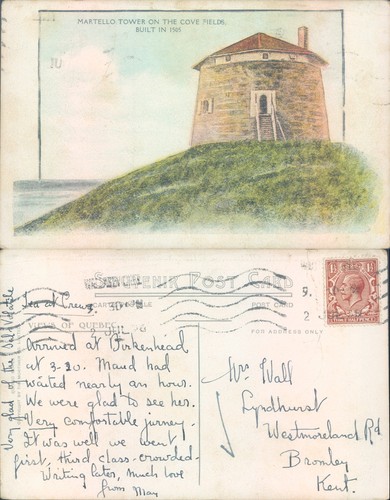 MARTELLO TOWER ON THE COVE FIELDS.
BUILT IN 1805
SOUVENIR POST CARD
VIEWS OF QUEBEC
FOR ADDRESS ONLY
Tea at Crewe.
Arrived at Birkenhead
at 3-20. Maud had
waited nearly an hour.
We were glad to see her.
Very comfortable journey.
It was well we went
first, third class crowded.
Writing later, much love
from May
Very glad of the
Mrs Wall
Lyndhurst
Westmoreland Rd
Bromley
Kent.